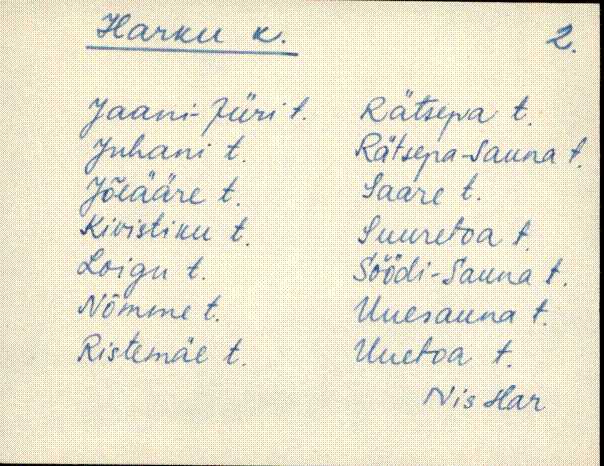 Harku k.
2.
Jaani-Jüri t.
Juhani t.
Jõeääre t.
Kivistiku t.
Loigu t.
Nõmme t.
Ristemäe t.
Rätsepa t.
Rätsepa-Sauna t.
Saare t.
Suuretoa t.
Söödi-Sauna t.
Uuesauna t.
Uuetoa t.
Nis Har